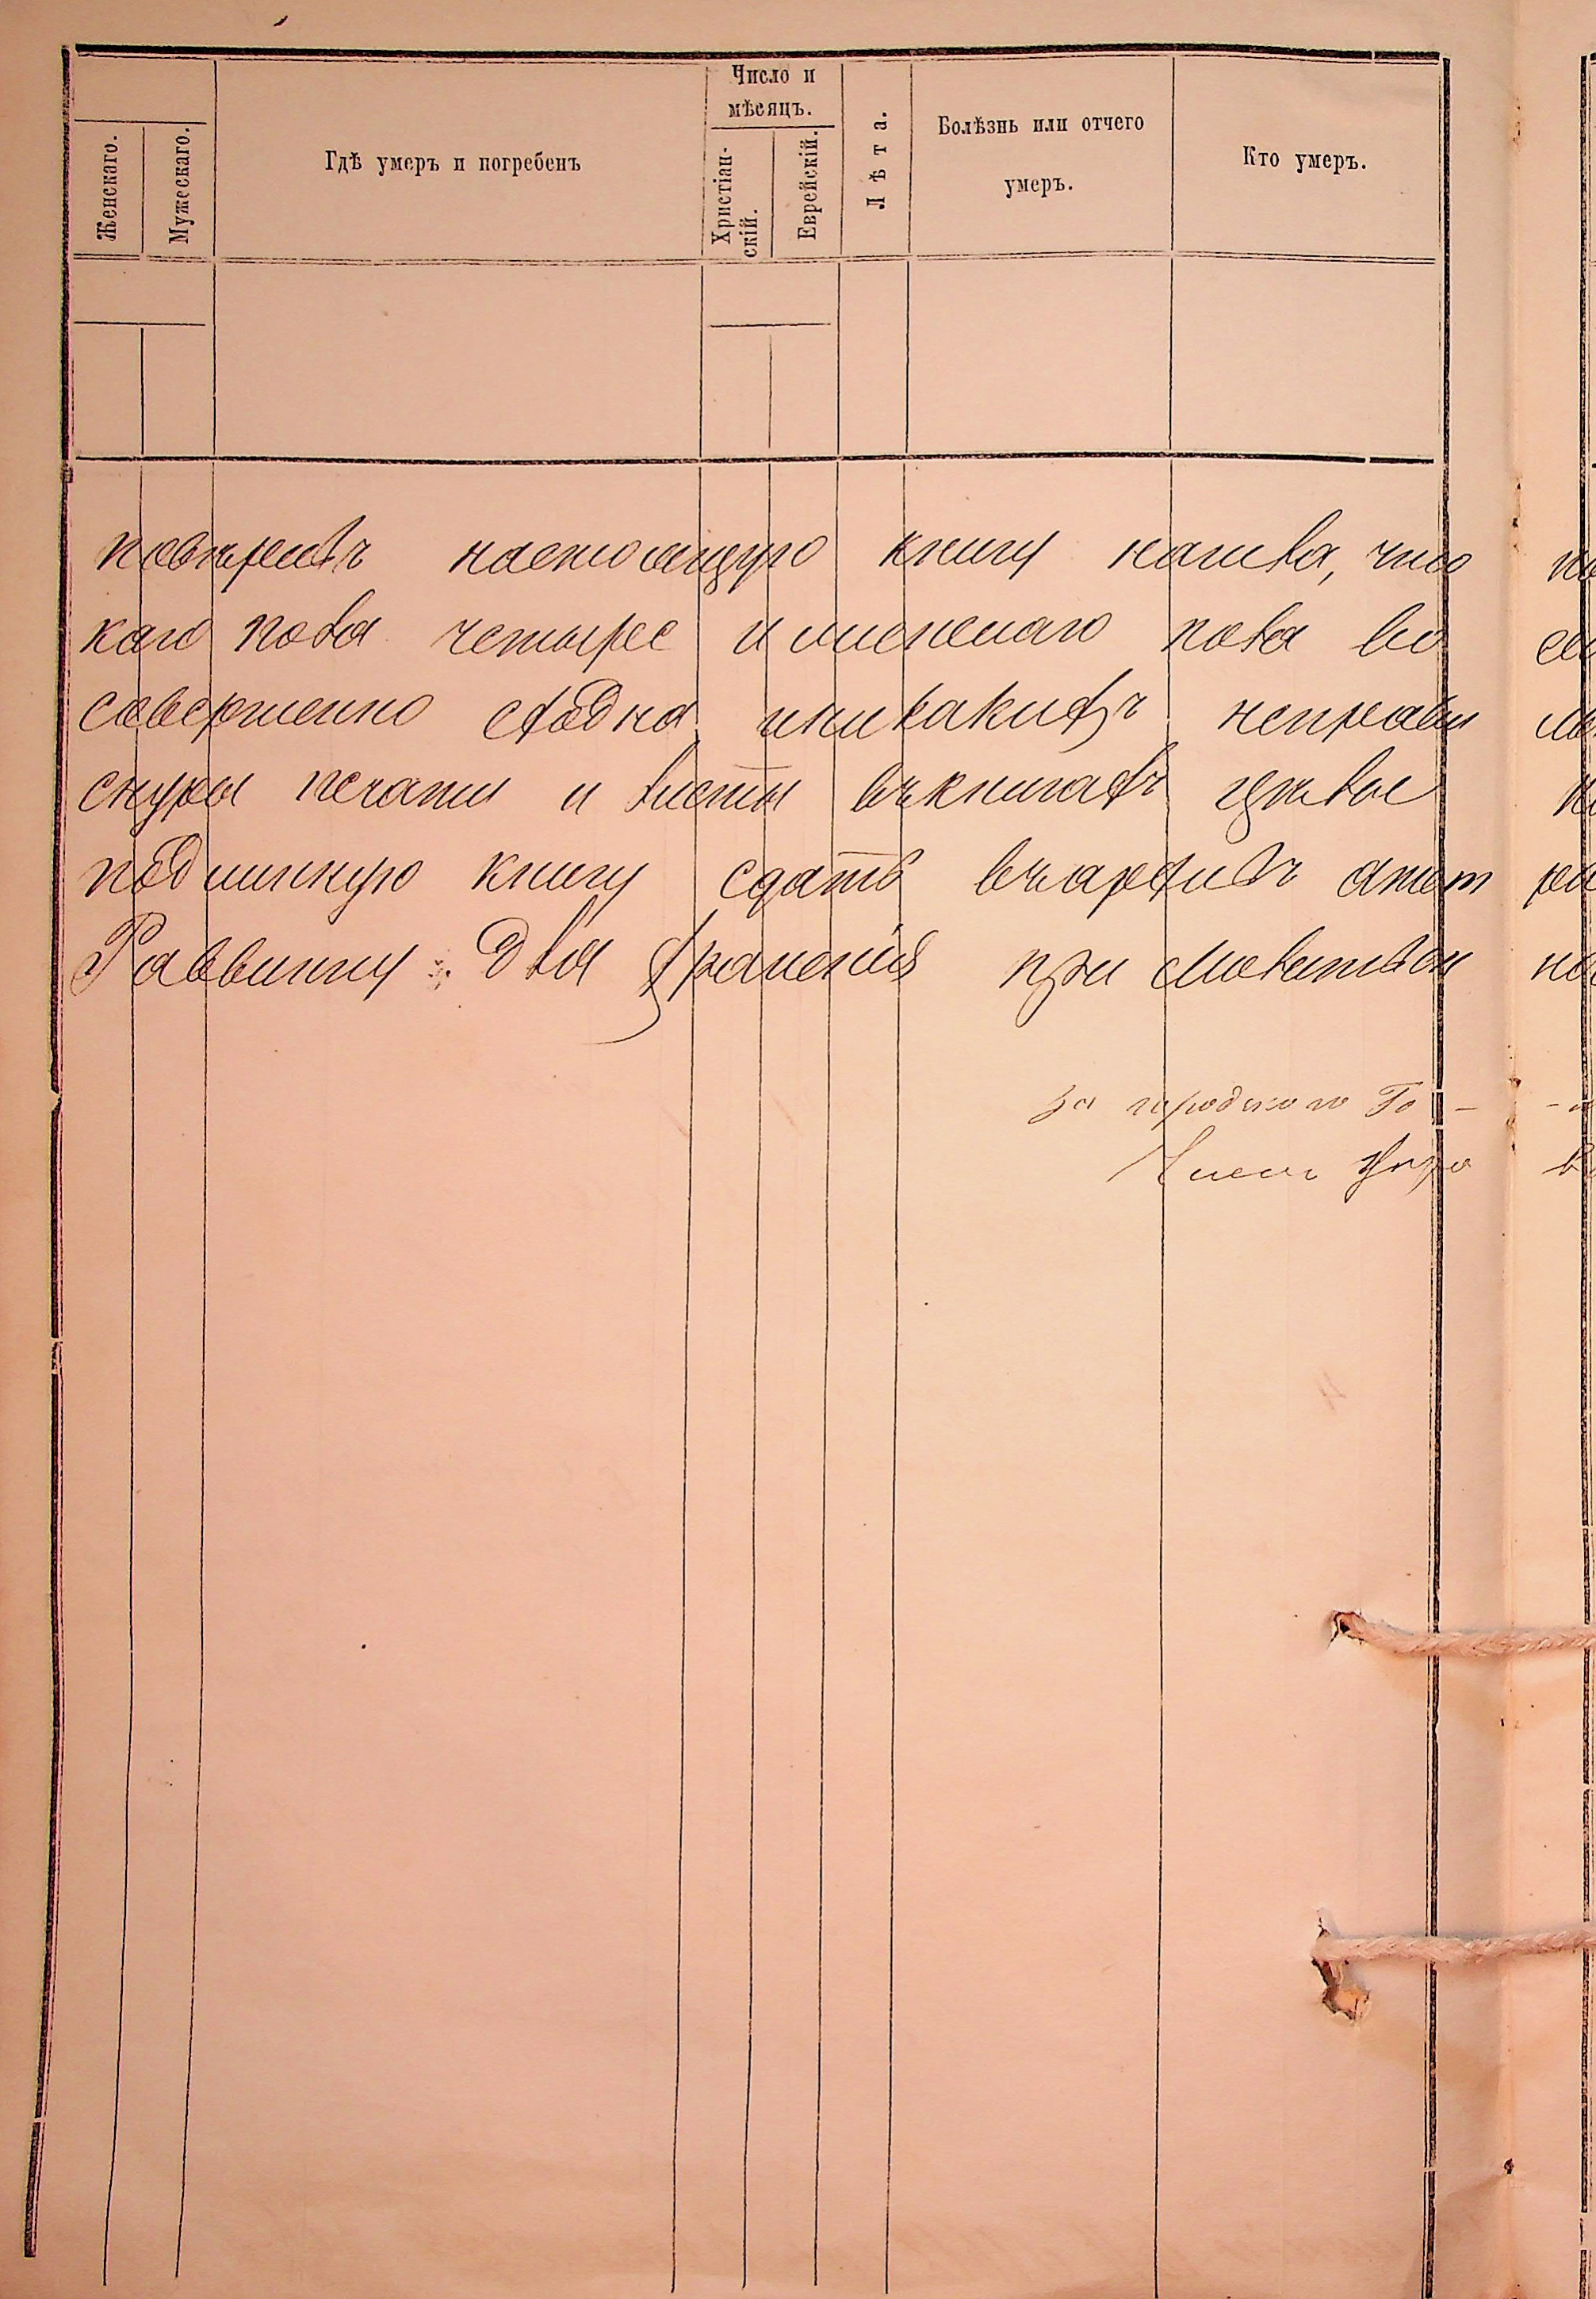 Женскаго.
Мужескаго.
Гдѣ умеръ и погребенъ
Число и
мѣсяцъ.
Христіан-
скій.
Еврейскій.
Лѣта.
Болѣзнь или отчего
умеръ.
Кто умеръ.
повѣривъ настоящую книгу нашла, что
каго пола четыре и женскаго пола во
совершенно сходна и никакихъ неправи
снуры печати и листы въ книгахъ цѣлые
подлинную книгу сдать въ архивъ
Раввину для храненія при молитвен
За городского Го-
Членъ Упра